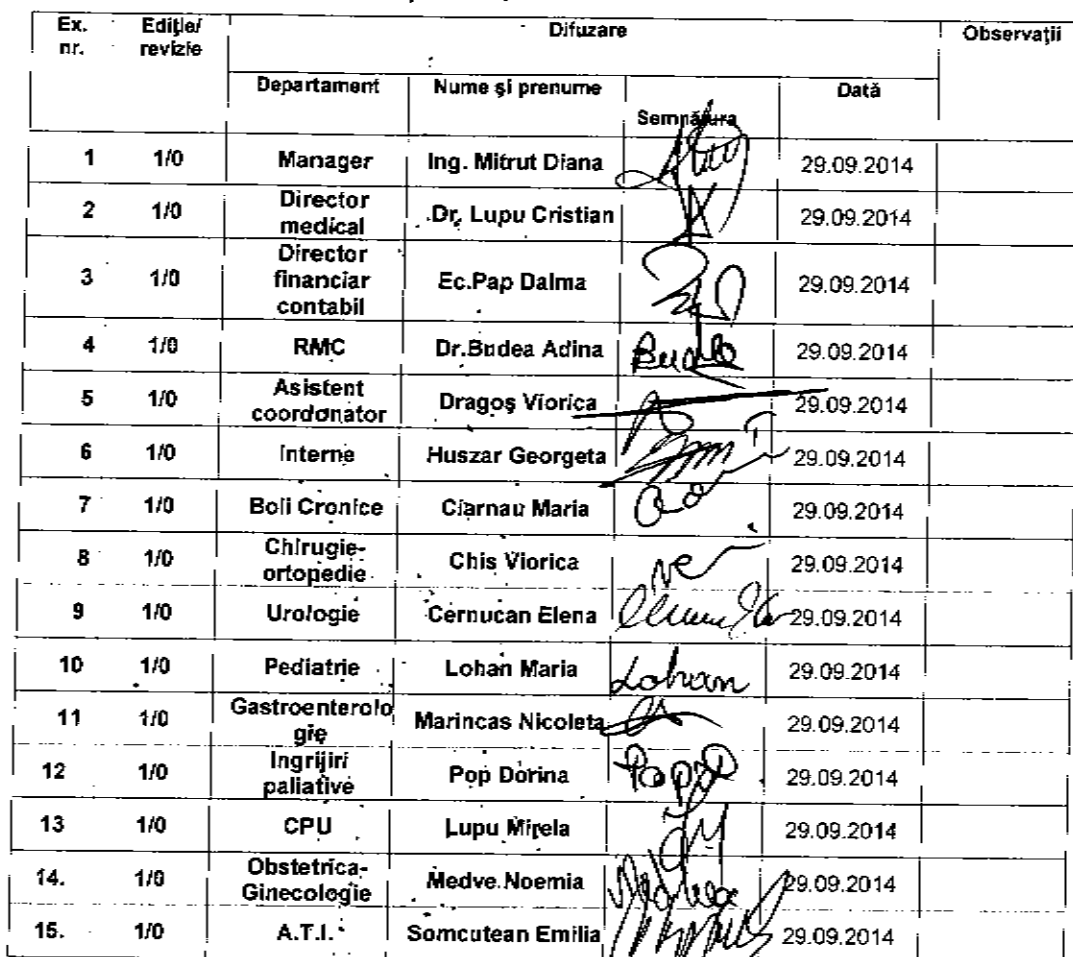 Ex. nr. Ediţie/ revizie Difuzare Observaţii
Departament Nume şi prenume Semnătura Dată
1 1/0 Manager Ing. Mitrut Diana 29.09.2014
2 1/0 Director medical Dr. Lupu Cristian 29.09.2014
3 1/0 Director financiar contabil Ec.Pap Dalma 29.09.2014
4 1/0 RMC Dr.Budea Adina 29.09.2014
5 1/0 Asistent coordonator Dragoş Viorica 29.09.2014
6 1/0 Interne Huszar Georgeta 29.09.2014
7 1/0 Boli Cronice Ciarnau Maria 29.09.2014
8 1/0 Chirugie-ortopedie Chis Viorica 29.09.2014
9 1/0 Urologie Cernucan Elena 29.09.2014
10 1/0 Pediatrie Lohan Maria Lohan 29.09.2014
11 1/0 Gastroenterologie Marincas Nicoleta 29.09.2014
12 1/0 Ingrijiri paliative Pop Dorina 29.09.2014
13 1/0 CPU Lupu Mirela 29.09.2014
14. 1/0 Obstetrica-Ginecologie Medve Noemia 29.09.2014
15. 1/0 A.T.I. Somcutean Emilia 29.09.2014